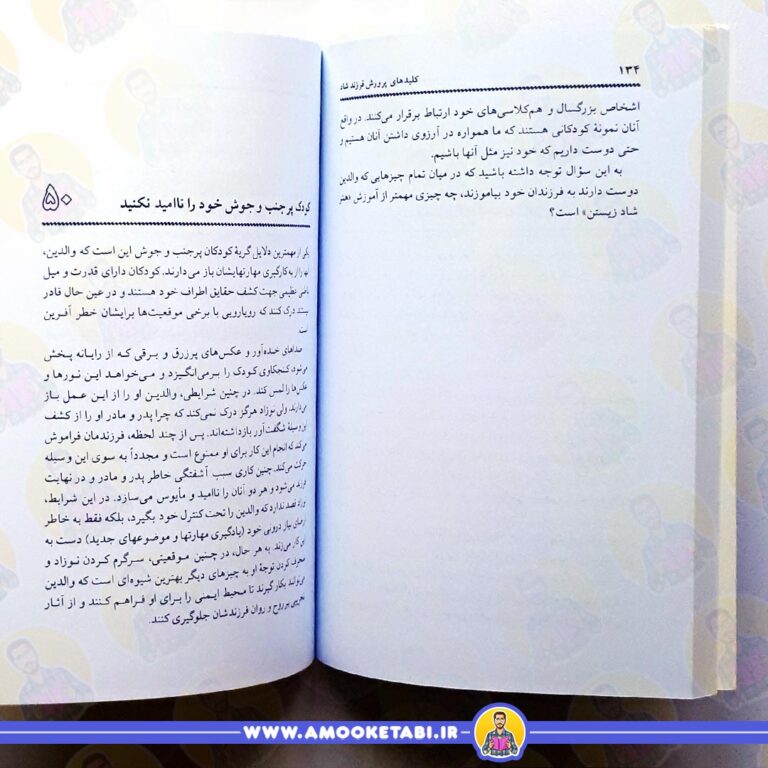 ۱۳۴
کلیدهای پرورش فرزند شاد
اشخاص بزرگسال و هم‌کلاسی‌های خود ارتباط برقرار می‌کنند. در واقع
آنان نمونهٔ کودکانی هستند که ما همواره در آرزوی داشتن آنان هستیم و
حتی دوست داریم که خود نیز مثل آنها باشیم.
به این سؤال توجه داشته باشید که در میان تمام چیزهایی که والدین
دوست دارند به فرزندان خود بیاموزند، چه چیزی مهمتر از آموزش «هنر
شاد زیستن» است؟
۵۰
کودک پر جنب و جوش خود را ناامید نکنید
یکی از مهمترین دلایل گریهٔ کودکان پرجنب و جوش این است که والدین،
آنها را از به کارگیری مهارتهایشان باز می‌دارند. کودکان دارای قدرت و میل
باطنی عظیمی جهت کشف حقایق اطراف خود هستند و در عین حال قادر
نیستند درک کنند که رویارویی با برخی موقعیت‌ها برایشان خطر آفرین
است.
صداهای خنده‌آور و عکس‌های پرزرق و برقی که از رایانه پخش
می‌شود، کنجکاوی کودک را برمی‌انگیزد و می‌خواهد این نورها و
عکس‌ها را لمس کند. در چنین شرایطی، والدین او را از این عمل باز
می‌دارند، ولی نوزاد هرگز درک نمی‌کند که چرا پدر و مادر او را از کشف
این وسیلهٔ شگفت‌آور بازداشته‌اند. پس از چند لحظه، فرزندمان فراموش
می‌کند که انجام این کار برای او ممنوع است و مجدداً به سوی این وسیله
حرکت می‌کند. چنین کاری سبب آشفتگی خاطر پدر و مادر و در نهایت
فرزند می‌شود و هر دو آنان را ناامید و مأیوس می‌سازد. در این شرایط،
نوزاد قصد ندارد که والدین را تحت کنترل خود بگیرد، بلکه فقط به خاطر
ارضای نیاز درونی خود (یادگیری مهارتها و موضوعهای جدید) دست به
این کار می‌زند. به هر حال، در چنین موقعیتی، سرگرم کردن نوزاد و
منحرف کردن توجهٔ او به چیزهای دیگر بهترین شیوه‌ای است که والدین
می‌توانند بکار گیرند تا محیط ایمنی را برای او فراهم کنند و از آثار
تخریبی بر روح و روان فرزندشان جلوگیری کنند.
WWW.AMOOKETABI.IR